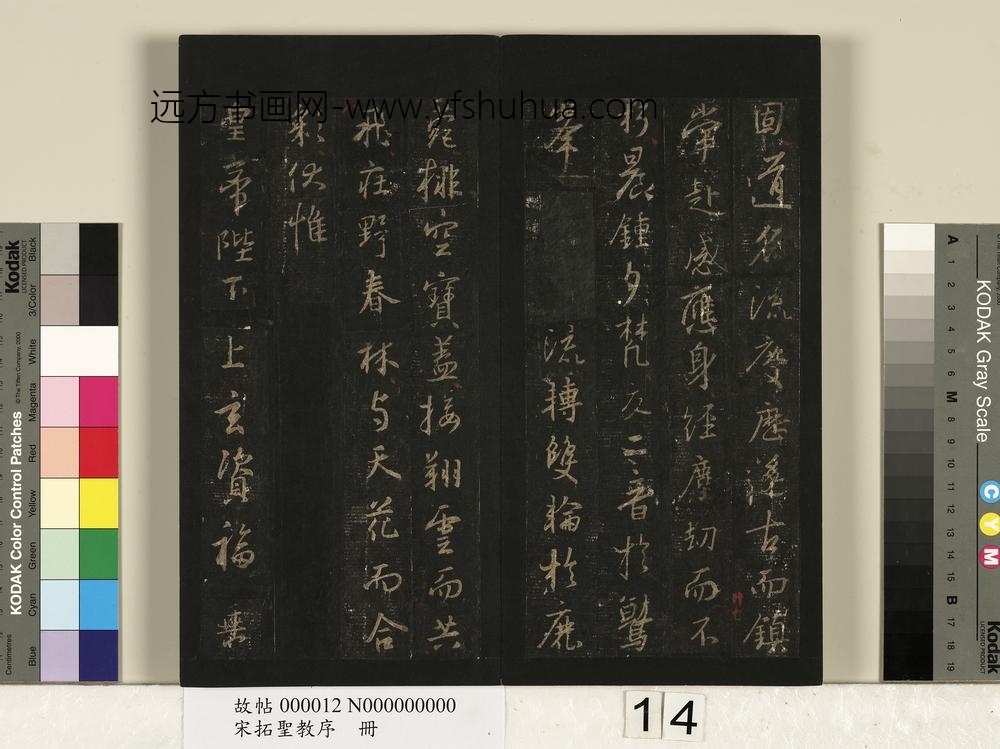 远方书画网-www.yfshuhua.com
固道名流慶歷遂古而鎮
常赴感應身經塵劫而不
朽晨鍾夕梵交二音於鷲
峯流轉雙輪於鹿
菀排空寶盖接翔雲而共
飛莊野春林與天花而合
彩伏惟
皇帝陛下上玄資福垂
故帖 000012 N000000000
宋拓聖教序 冊
14
Kodak
LICENSED PRODUCT
KODAK Color Control Patches
© The Tiffen Company, 2000
Centimetres
Blue Cyan Green Yellow Red Magenta White 3/Color Black
KODAK Gray Scale
A 1 2 3 4 5 6 M 8 9 10 11 12 13 14 15 B 17 18 19
C Y M
Kodak
LICENSED PRODUCT